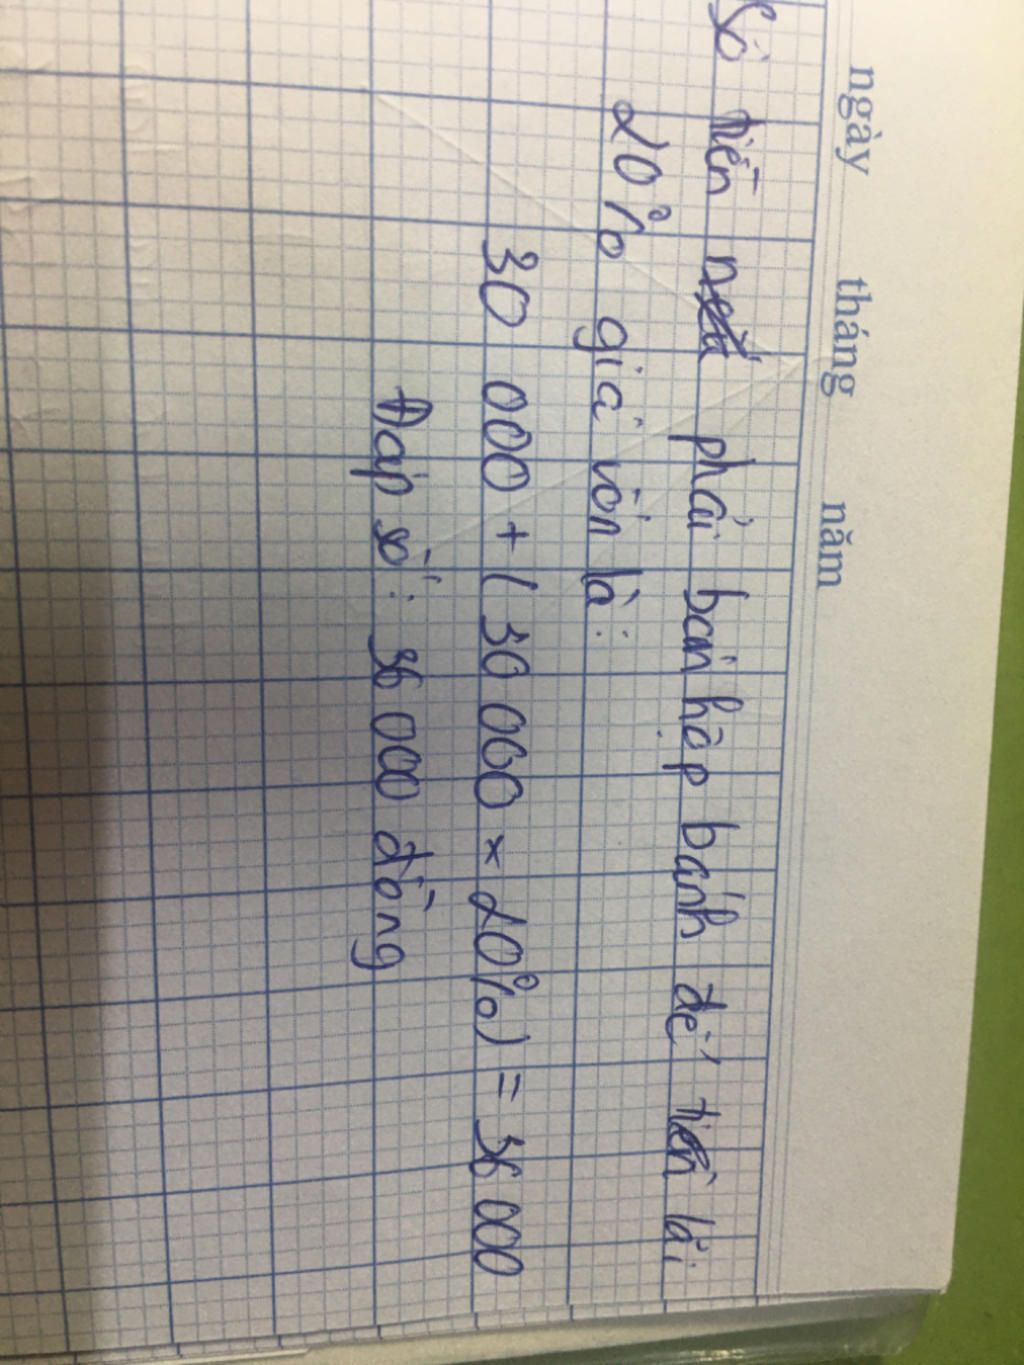 ngày tháng năm
Số tiền phải bán hộp bánh để tiền lãi
20% giá vốn là:
30 000 + ( 30 000 × 20%) = 36 000
Đáp số: 36 000 đồng